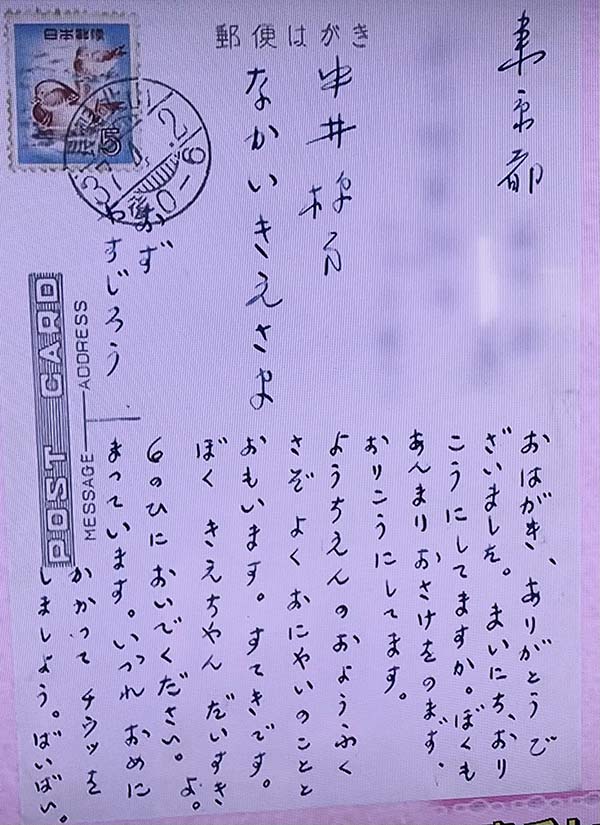 日本郵便
5
郵便はがき
37
2
後0-6
東京都
中井様方
なかいきえさま
おず
やすじろう
POST CARD
MESSAGE
ADDRESS
おはがき、ありがとうご
ざいました。まいにち、おり
こうにしてますか。ぼくも
あんまりおさけをのまず、
おりこうにしてます。
ようちえんのおようふく
さぞ よく おにやいのことと
おもいます。すてきです。
ぼく きえちやん だいすき よ。
6のひにおいでください。
まっています。いづれ おめに
かかって チウッを
しましよう。ばいばい。